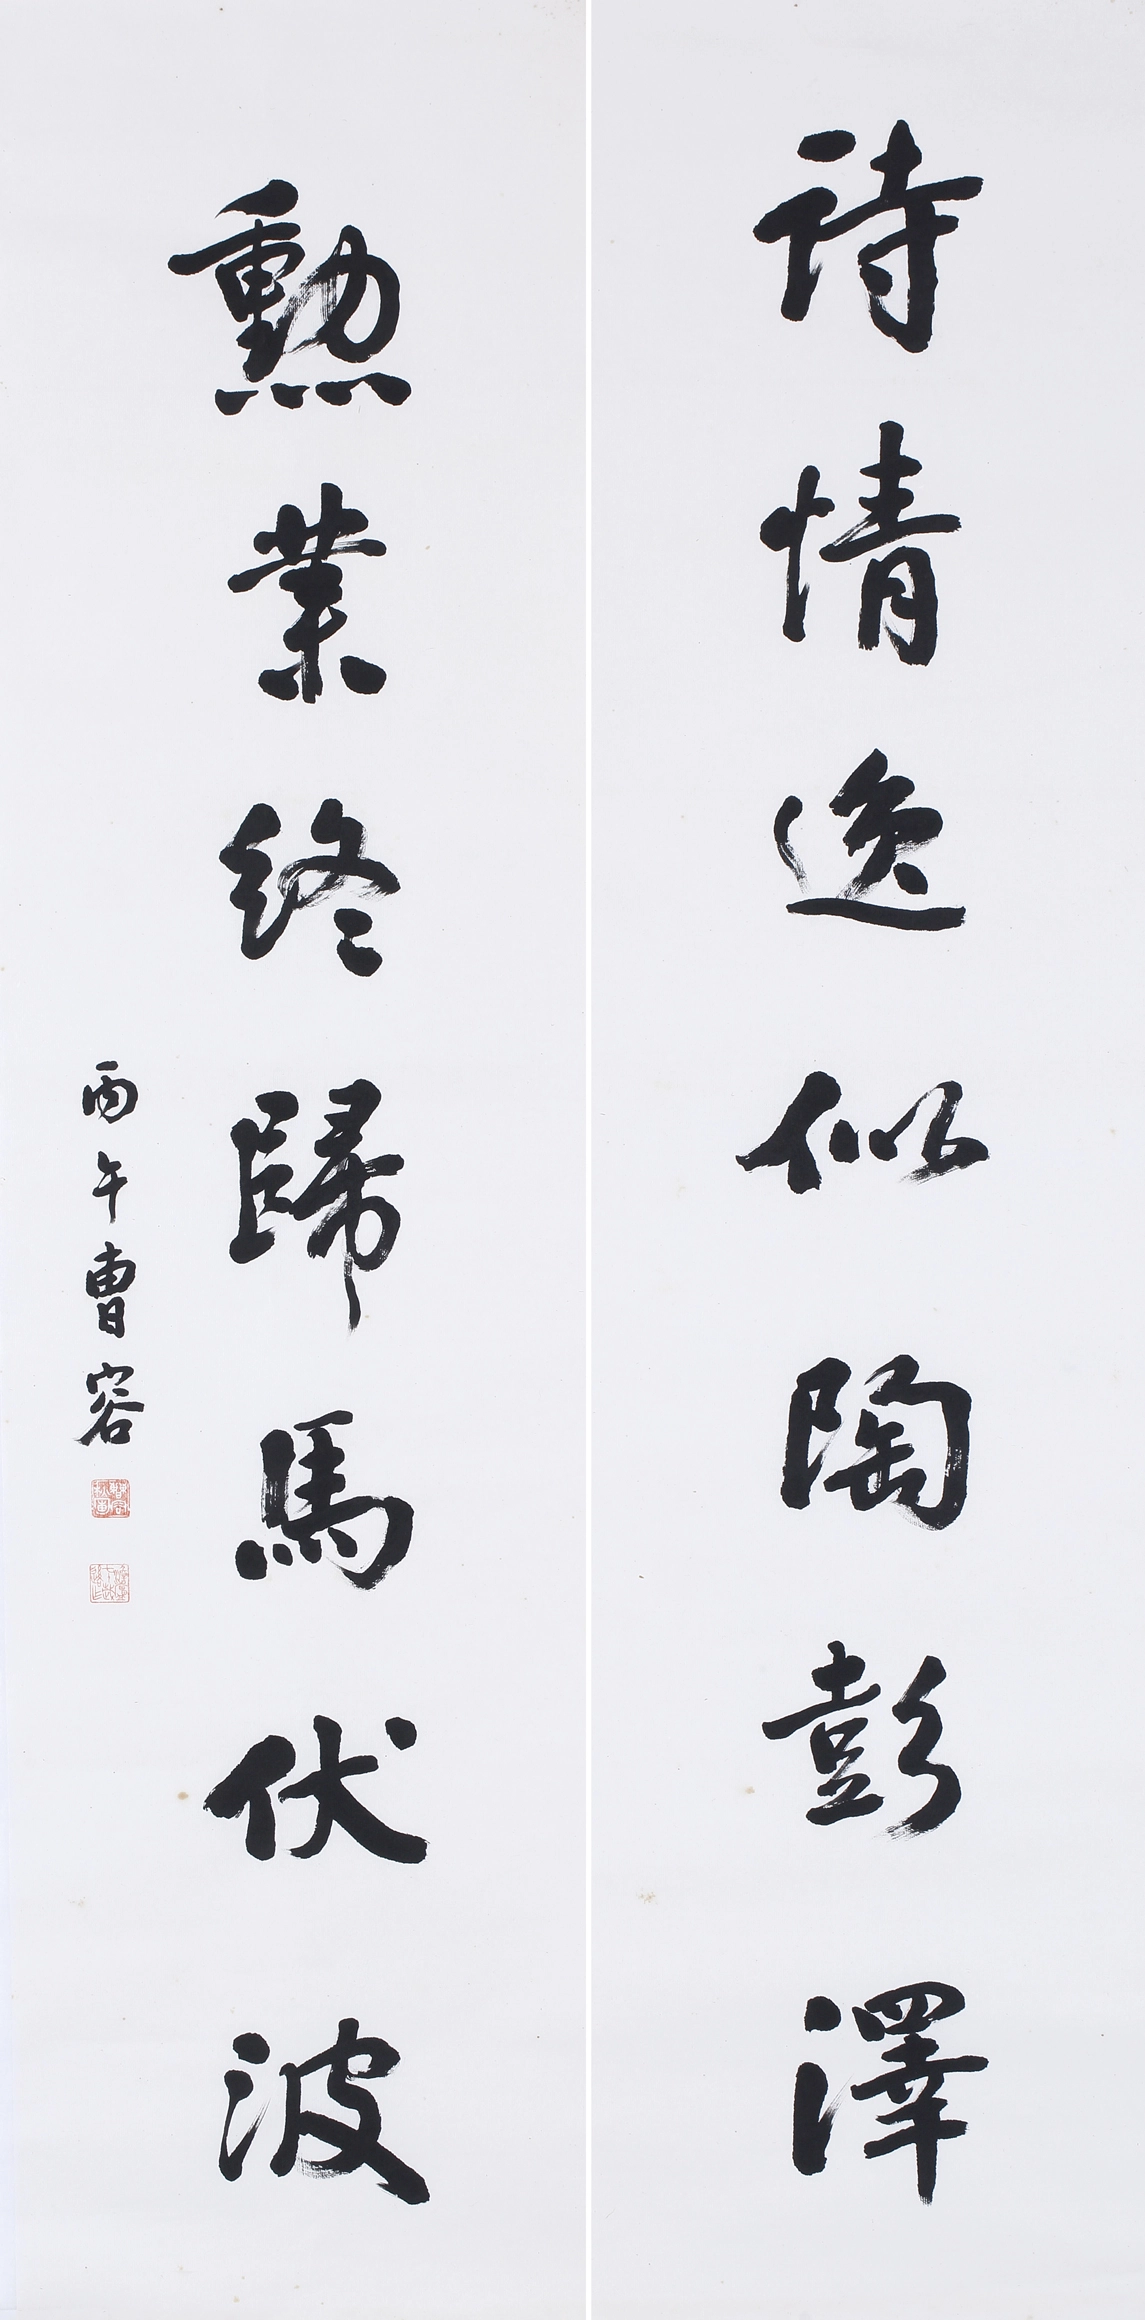 詩情逸似陶彭澤
勲業終歸馬伏波
丙午曹容